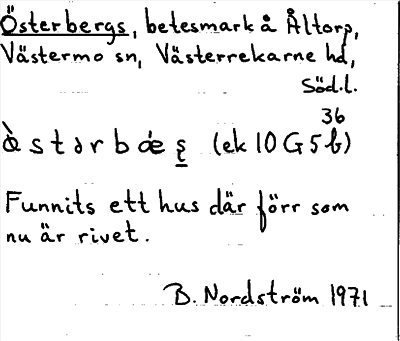 Österbergs, betesmark å Åltorp,
Västermo sn, Västerrekarne hd,
Söd.l.
36
(ek 10 G 5 b)
Funnits ett hus där förr som
nu är rivet.
B. Nordström 1971